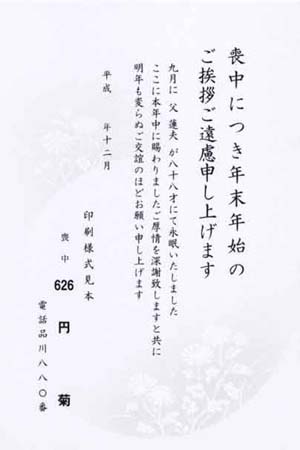 喪中につき年末年始の
ご挨拶ご遠慮申し上げます
九月に 父 蓮夫 が八十八才にて永眠いたしました
ここに本年中に賜わりましたご厚情を深謝致しますと共に
明年も変らぬご交誼のほどお願い申し上げます
平成 年十二月
印刷様式見本
喪中 626 円 菊
電話品川八八〇番